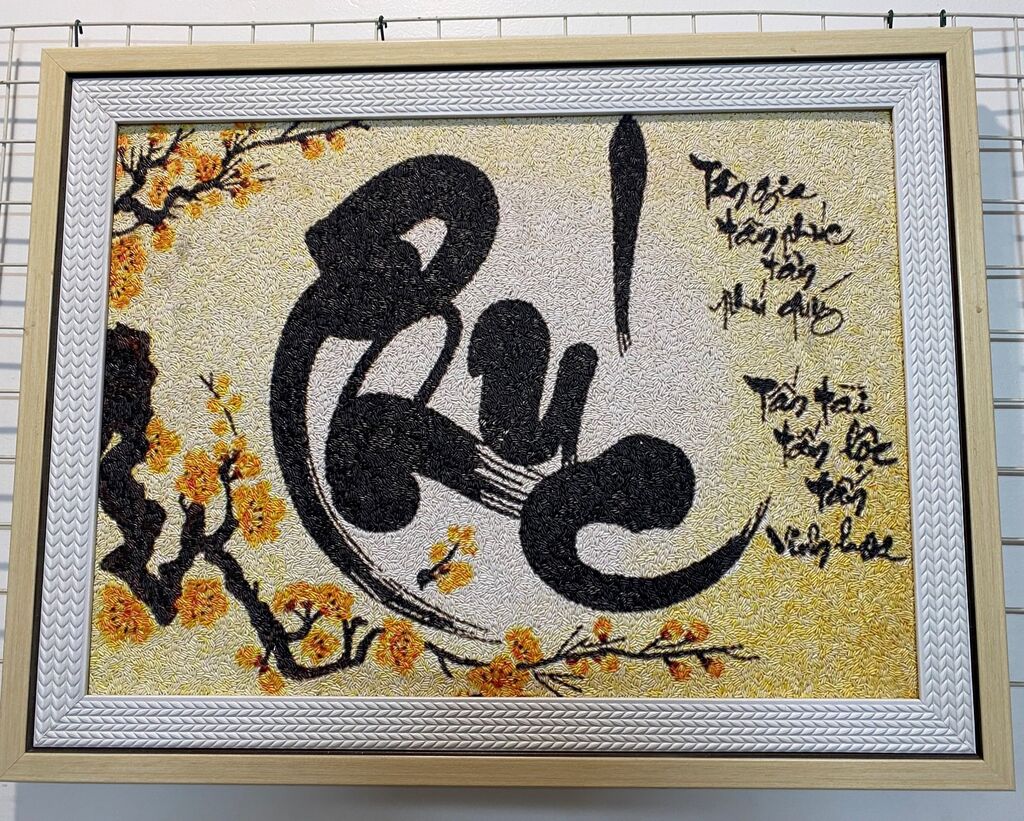 Phúc
Tân gia
tân phúc
tân
phú quý
Tấn tài
tấn lộc
tấn
Vinh hoa